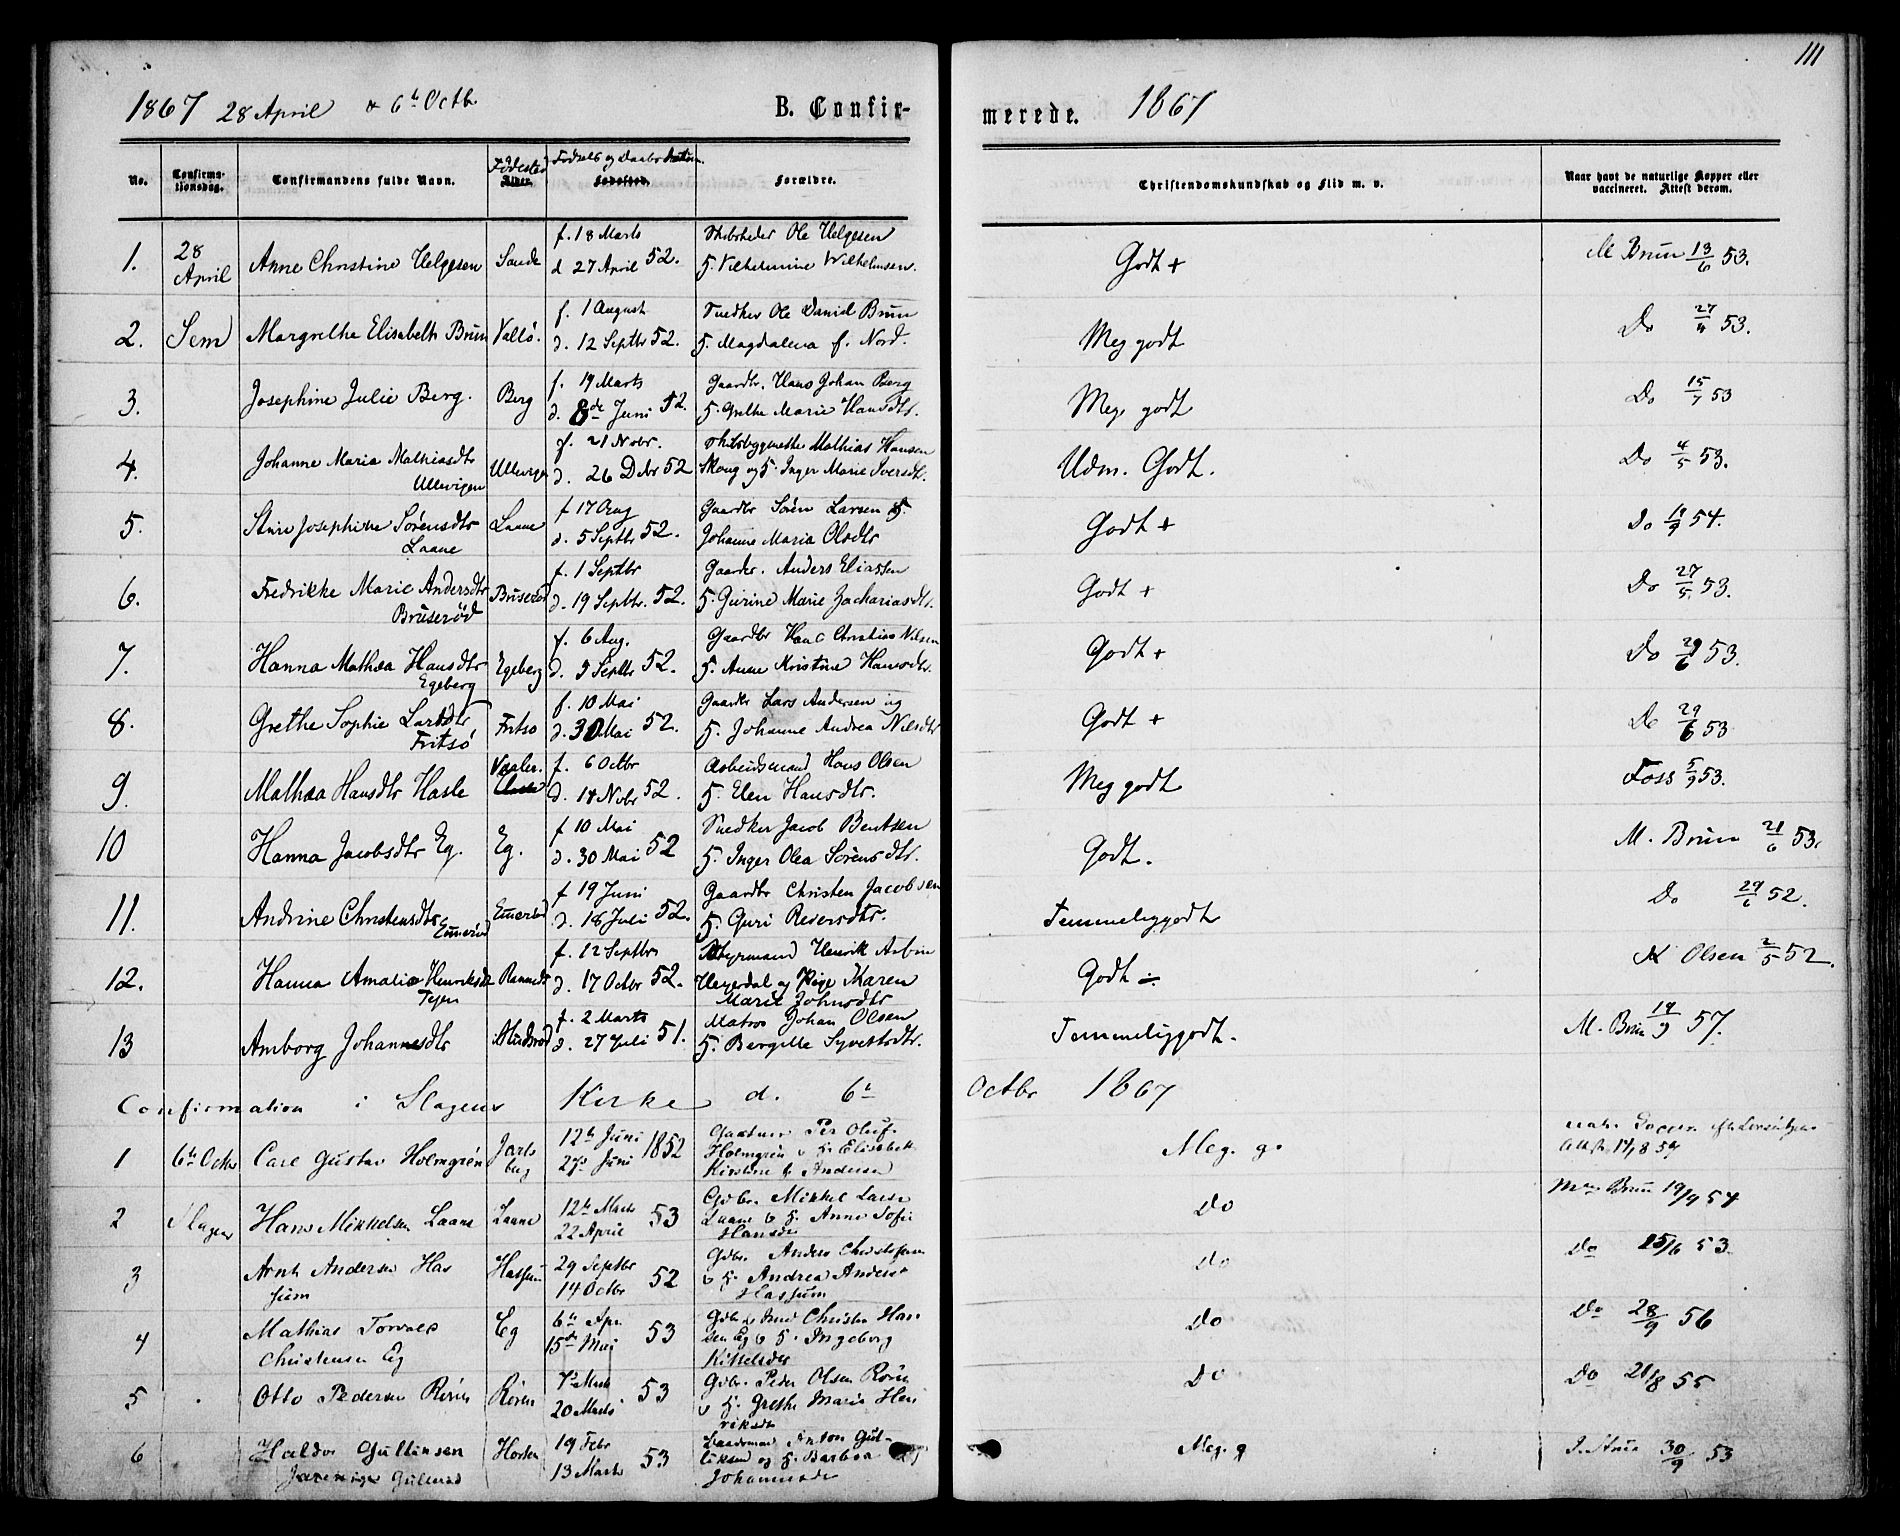 111
1867 28 April & 6te Octb.
B. Confir-
merede. 1867
No.
Confirma-
tionsdag.
Confirmandens fulde Navn.
Fødested
Alder.
Fødsels og Daabs Datum.
Fødested.
Forældre.
Christendomskundskab og Flid m. v.
Naar havt de naturlige Kopper eller
vaccineret. Attest derom.
1. 28 April Anne Christine Helgesen Sande f. 18 Marts
d 27 April 52. Ole Helgesen
Vilhelmine Wilhelmsen. Godt + M Brun 13/6 53.
2. Sem Margrethe Elisabeth Brun Vallö. f. 1 August
d. 12 Septbr 52. Snedker Ole Daniel Brun
Magdalena f. Nord. Meg godt Do 53.
3. Josephine Julie Berg. Berg f. 19 Marts
d. 8de Juni 52. Gaardbr. Hans Johan Berg
Grethe Marie Hansdtr. Meg. godt Do 15/7 53
4. Johanne Maria Mathiasdtr
Ullevigen Ullevigen f. 21 Novbr.
d. 26 Dbr 52 Mathias Hansen
Skoug og Inger Marie Iversdtr. Udm. Godt. Do 4/5 53.
5. Josephine Sörensdtr
Laane Laane f 17 Aug
d. 5 Septbr 52. Gaardbr Sören Larsen
Johanne Maria Olsdtr Godt + Do 54.
6. Fredrikke Marie Andersdtr
Bruseröd Bruseröd f. 1 Septbr
d. 19 Septbr. 52. Gaardbr. Anders Eliassen
Gurine Marie Zachariasdtr. Godt + Do 27/5 53.
7. Hanna Mathea Hansdtr
Egeberg Egeberg f. 6 Aug.
d. 5 Septbr 52. Gaardbr Hans Christian Nilsen
Anne Kristine Hansdtr. Godt + Do 53.
8. Grethe Sophie Larsdtr
Fritsö Fritsö f. 10 Mai
d. 30 Mai 52. Gaardbr Lars Andersen og
Johanne Andrea Nilsdtr Godt + Do 29/6 53
9. Mathea Hansdtr Hasle Vaaler. f. 6 Octbr
d. 14 Novbr 52. Arbeidsmand Hans Olsen
Elen Hansdtr. Meg godt Foss 5/9 53.
10 Hanna Jacobsdtr Eg. Eg. f 10 Mai
d. 30 Mai 52 Snedker Jacob Bentsen
Inger Olea Sörensdtr. Godt. M. Brun 21/6 53.
11. Andrine Christensdtr f 19 Juni
d. 18 Juli 52. Gaardbr Christen Jacobsen
Guri Reiersdtr. Temmeliggodt Do 29/6 52.
12. Hanna Amalia Henriksdtr f. 12 Septbr
d. 17 Octbr 52. Styrmand Henrik
Heyerdal og Pige Karen
Marie Johnsdtr Godt ÷ Olsen 2/5 52.
13 Amborg Johannesdtr f. 2 Marts
d. 27 Juli 51. Matros Johan Olsen
Temmeliggodt. M. Brun 57.
Confirmation i Slagens Kirke d. 6te Octbr 1867
1 6te Octbr Carl Gustav Holmgrén Jarls
berg 12te Juni
27de Juni 1852 Per Oluf
Holmgrén Elisabeth
Kirstine f. Andersen Meg. g.
2 Slagen Hans Mikkelsen Laane Laane 12te Marts
22 April 53 Gdbr. Mikkel Larse
Laane Anne Sofie
Hansdr Do Brun 19/9 54
3 Arnt Andersen Has
sum Hassum 29 Septbr
14 Octbr 52 Gdbr. Anders Christofersen
Andrea Anders
Hassum Do Do 15/6 53
4 Mathias Torvald
Christensen Eg Eg 6te Apr
15de Mai 53 Christen Han
sen Eg Ingeborg
Kittelsdr Do Do 28/9 56
5 Otto Pedersen Rören Rören Marts
20 Marts 53 Gdbr. Peder Olsen Rören
Grethe Marie Hen
riksdtr Do Do 21/8 55
6 Haldor Gullinsen Horten 19 Febr
13 Marts 53 Anton Gul-
liksen og Barbra
Johannesdr Meg. g 30/9 53